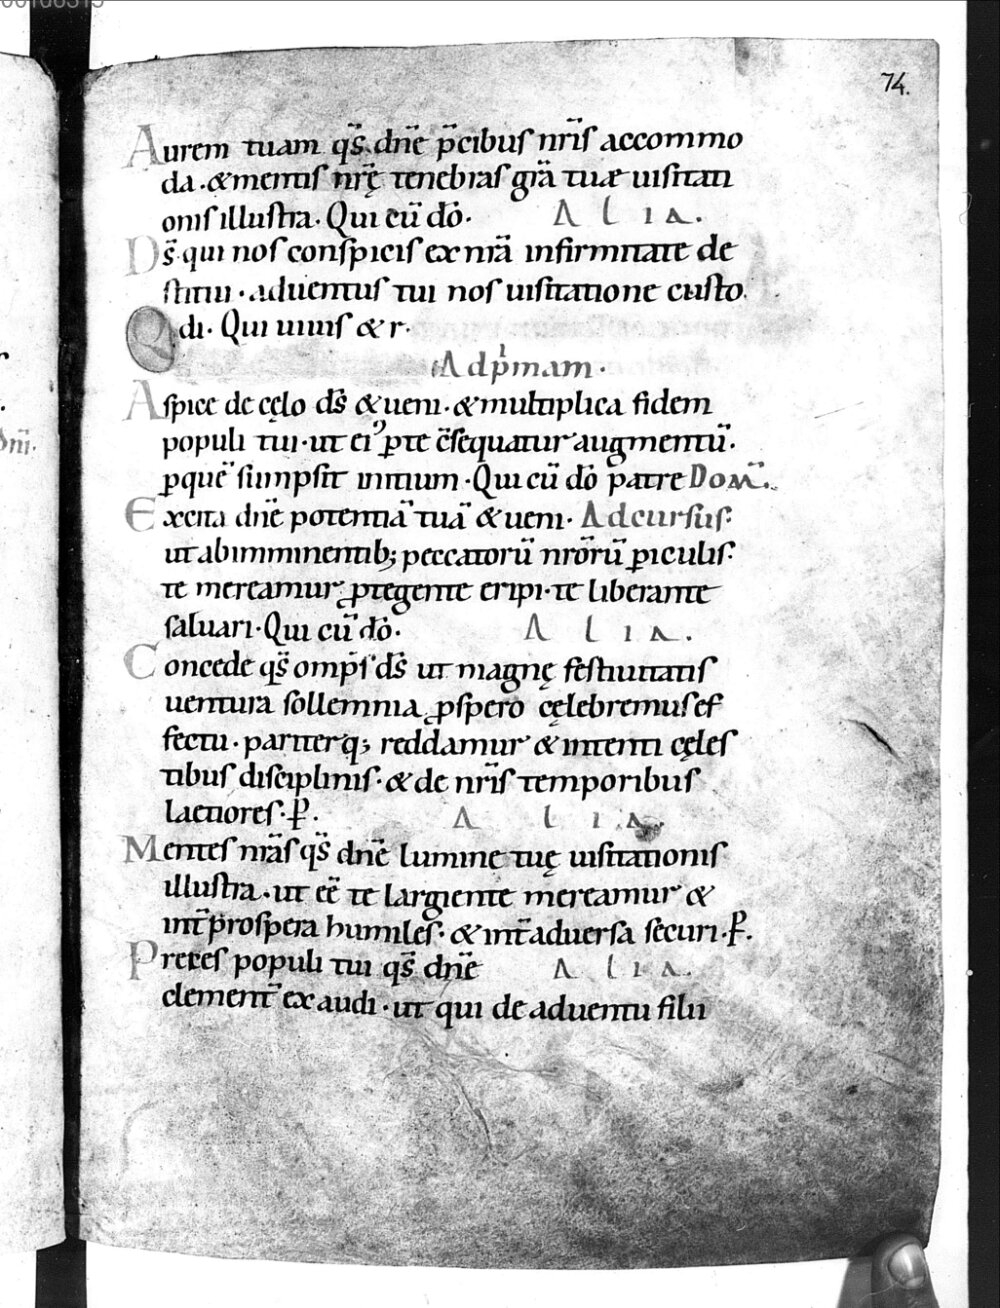 74.
Aurem tuam qs̄. dn̄e p̄cibus nr̄is accommo
da. & mentis nr̄ę tenebras gr̄a tuæ uisitati
onis illustra. Qui cū dō. ALIA.
Ds̄ qui nos conspicis ex nr̄a infirmitate de
stitui. aduentus tui nos uisitatione custo
di. Qui uiuis & r.
Q
Ad pͥmam.
Aspice de cęlo ds̄ & ueni. & multiplica fidem
populi tui. ut eiꝰ ꝑte c̄sequatur augmentū.
ꝑquē sumpsit initium. Qui cū dō patre Dom̄.
Excita dn̄e potentiā tuā & ueni. Ad cursus.
ut ab imminentib; peccatorū nr̄orū ꝑiculis.
te mereamur ꝓtegente eripi. te liberante
saluari. Qui cū dō. ALIA.
Concede qs̄ omp̄s ds̄ ut magnę festiuitatis
uentura sollemnia ꝓspero cęlebremus ef
fectu. pariterq; reddamur & intenti cęles
tibus disciplinis. & de nr̄is temporibus
laetiores. ꝑ. ALIA.
Mentes nr̄as qs̄ dn̄e lumine tuę uisitationis
illustra. ut eē te largiente mereamur &
int̄ prospera humiles. & int̄ aduersa securi. ꝑ.
Preces populi tui qs̄ dn̄e ALIA.
clement̄ exaudi. ut qui de aduentu filii